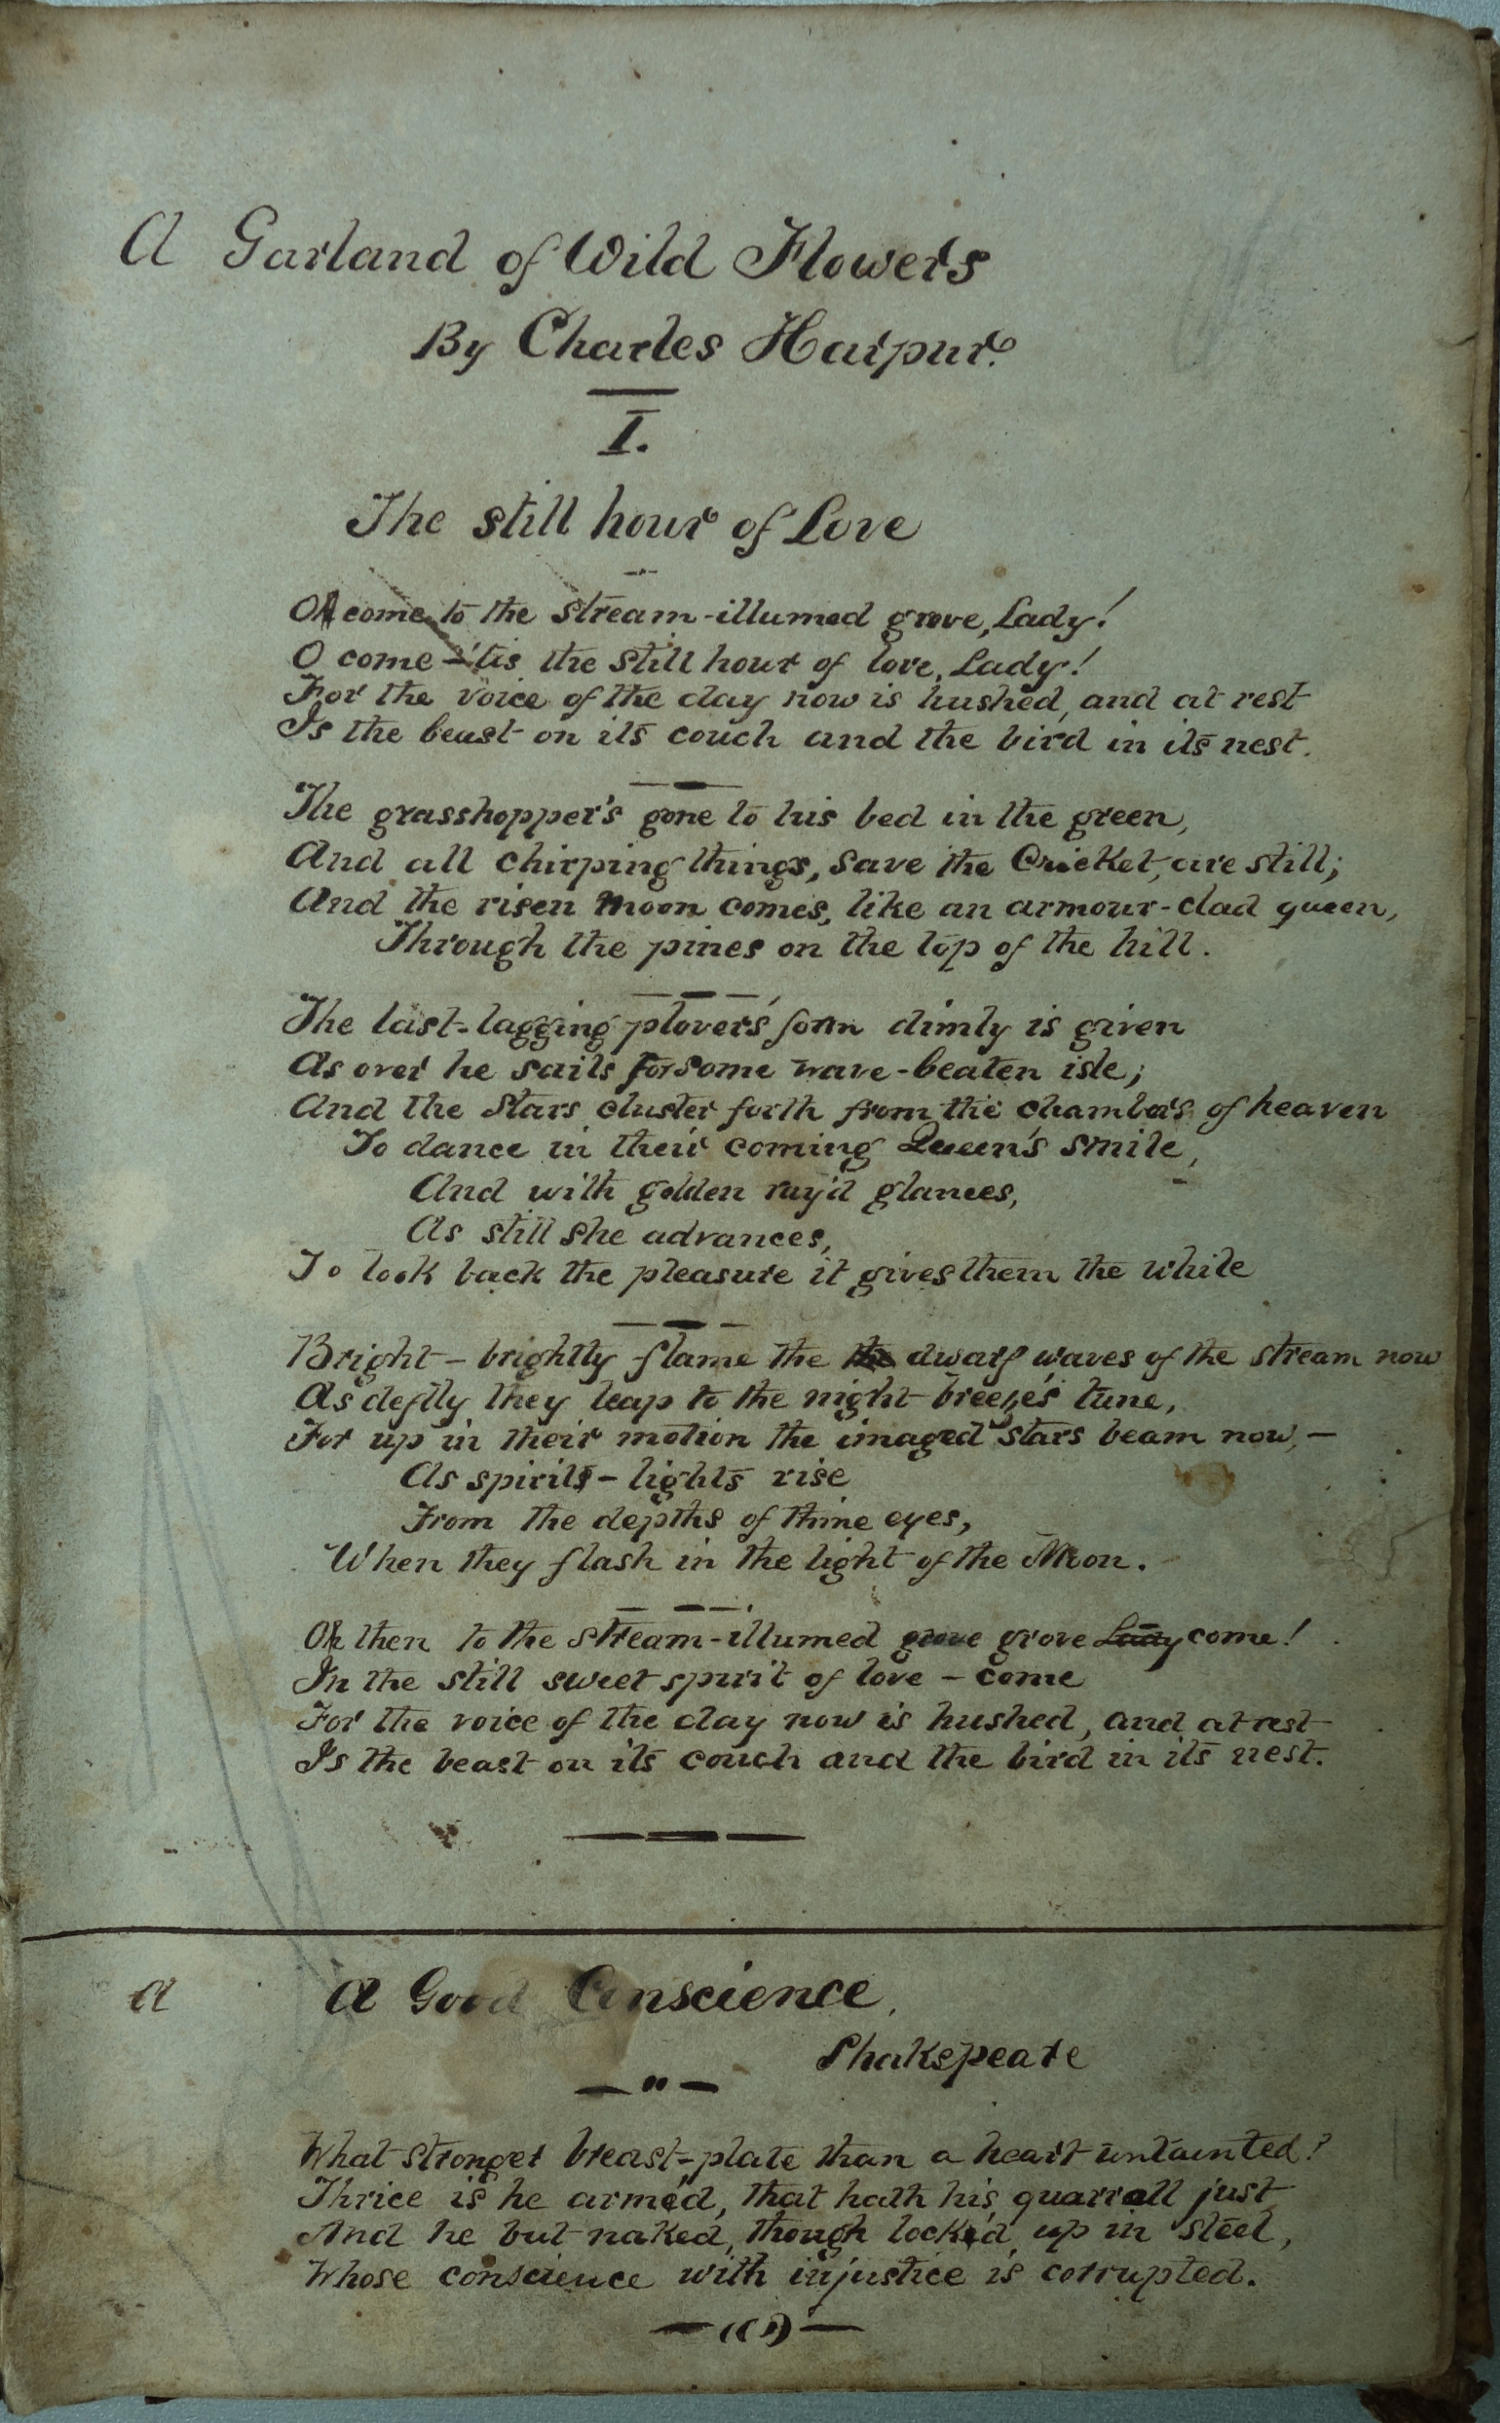 A Garland of Wild Flowers
By Charles Harpur.
I.
The still hour of Love
Oh come to the stream-illumed grove, Lady!
O come – 'tis the still hour of love, Lady!
For the voice of the day now is hushed, and at rest
Is the beast on its couch and the bird in its nest.
The grasshopper's gone to his bed in the green,
And all chirping things, save the Cricket, are still;
And the risen moon comes, like an armour-clad queen,
Through the pines on the top of the hill.
The last-lagging plover's form dimly is given
As over he sails for some wave-beaten isle;
And the Stars cluster forth from the chambers of heaven
To dance in their coming Queen's smile,
And with golden ray'd glances,
As still she advances,
To look back the pleasure it gives them the while
Bright – brightly flame the the dwarf waves of the stream now
As deftly they leap to the night-breeze's tune,
For up in their motion the imaged stars beam now, –
As spirits – lights rise
From the depths of thine eyes,
When they flash in the light of the Moon.
Oh then to the stream-illumed grove grove Lady come!
In the still sweet spirit of love – come
For the voice of the day now is hushed, and at rest
Is the beast on its couch and the bird in its nest.
a A Good Conscience,
Shakspeare
What stronger breast-plate than a heart untainted?
Thrice is he armed, that hath his quarrell just
And he but naked, though locked up in steel,
Whose conscience with injustice is corrupted.